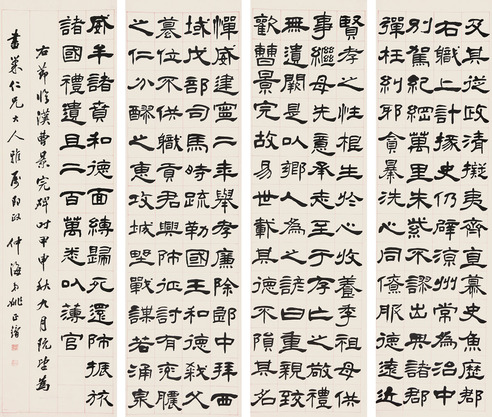 及其從政清擬夷齊直慕史魚歷郡
右職上計掾史仍辟涼州常為治中
別駕紀綱萬里朱紫不謬出典諸郡
彈枉糾邪貪暴洗心同僚服德遠近
賢孝之性根生於心收養季祖母供
事繼母先意承志至于存亡之敬禮
無遺闕是以鄉人為之諺曰重親致
歡曹景完故易世載其德不隕其名
憚威建寧二年舉孝廉除郎中拜西
域戊部司馬時疏勒國王和德弒父
篡位不供職貢君興師征討有兗膿
之仁分醪之惠攻城野戰謀若涌泉
威牟諸賁和德面縛歸死還師振旅
諸國禮遺且二百萬悉以薄官
右節臨漢曹景完碑時甲申秋九月既望為
書箴仁兄大人雅屬即政 仲海弟姚正鏞